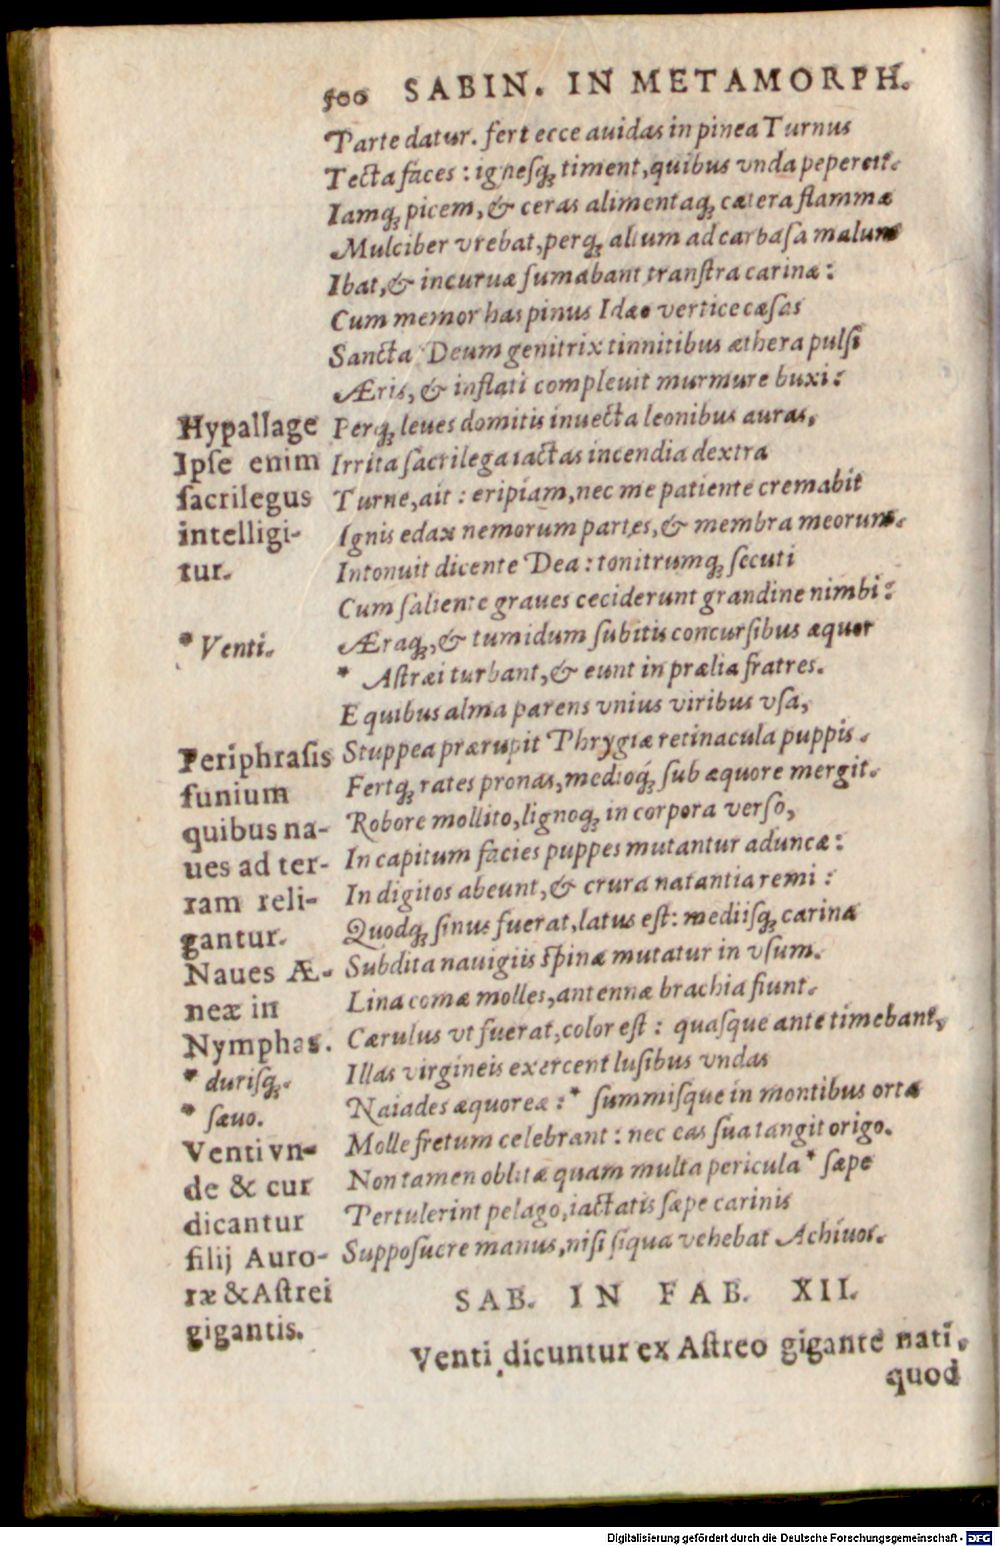 500 SABIN. IN METAMORPH.
Parte datur. fert ecce auidas in pinea Turnus
Tecta faces: ignesq́ue timent, quibus vnda pepercit.
Iamq́ue picem, & ceras alimentaq́ue cætera flammæ
Mulciber vrebat, perq́ue altum ad carbaſa malum
Ibat, & incuruæ fumabant tranſtra carinæ:
Cum memor has pinus Idæo vertice cæſas
Sancta Deum genitrix tinnitibus æthera pulſi
Æris, & inflati compleuit murmure buxi:
Perq́ue leues domitis inuecta leonibus auras,
Irrita ſacrilega iactas incendia dextra
Turne, ait: eripiam, nec me patiente cremabit
Ignis edax nemorum partes, & membra meorum.
Intonuit dicente Dea: tonitrumq́ue ſecuti
Cum ſaliente graues ceciderunt grandine nimbi:
Æraq́ue, & tumidum ſubitis concurſibus æquor
* Aſtræi turbant, & eunt in prælia fratres.
E quibus alma parens vnius viribus vſa,
Stuppea prærupit Phrygiæ retinacula puppis.
Fertq́ue rates pronas, medioq́ue ſub æquore mergit.
Robore mollito, lignoq́ue in corpora verſo,
In capitum facies puppes mutantur aduncæ:
In digitos abeunt, & crura natantia remi:
Quodq́ue ſinus fuerat, latus eſt: mediiſq́ue carina
Subdita nauigiis ſpinæ mutatur in vſum.
Lina comæ molles, antennæ brachia fiunt.
Cærulus vt fuerat, color eſt: quaſque ante timebant,
Illas virgineis exercent luſibus vndas
Naiades æquoreæ: * ſummiſque in montibus ortæ
Molle fretum celebrant: nec eas ſua tangit origo.
Non tamen oblitæ quam multa pericula * ſæpe
Pertulerint pelago, iactatis ſæpe carinis
Suppoſuere manus, niſi ſiqua vehebat Achiuos.
Hypallage
Ipſe enim
ſacrilegus
intelligi-
tur.
* Venti.
Periphraſis
funium
quibus na-
ues ad ter-
ram reli-
gantur.
Naues Æ-
neæ in
Nymphas.
* duriſq́ue.
* ſæuo.
Venti vn-
de & cur
dicantur
filij Auro-
ræ & Aſtrei
gigantis.
SAB. IN FAB. XII.
Venti dicuntur ex Aſtreo gigante nati,
quod
Digitalisierung gefördert durch die Deutsche Forschungsgemeinschaft - DFG